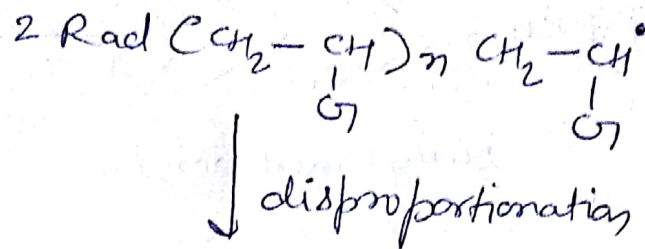 2 Rad (CH₂–CH)n CH₂–CH•
G G
disproportionation